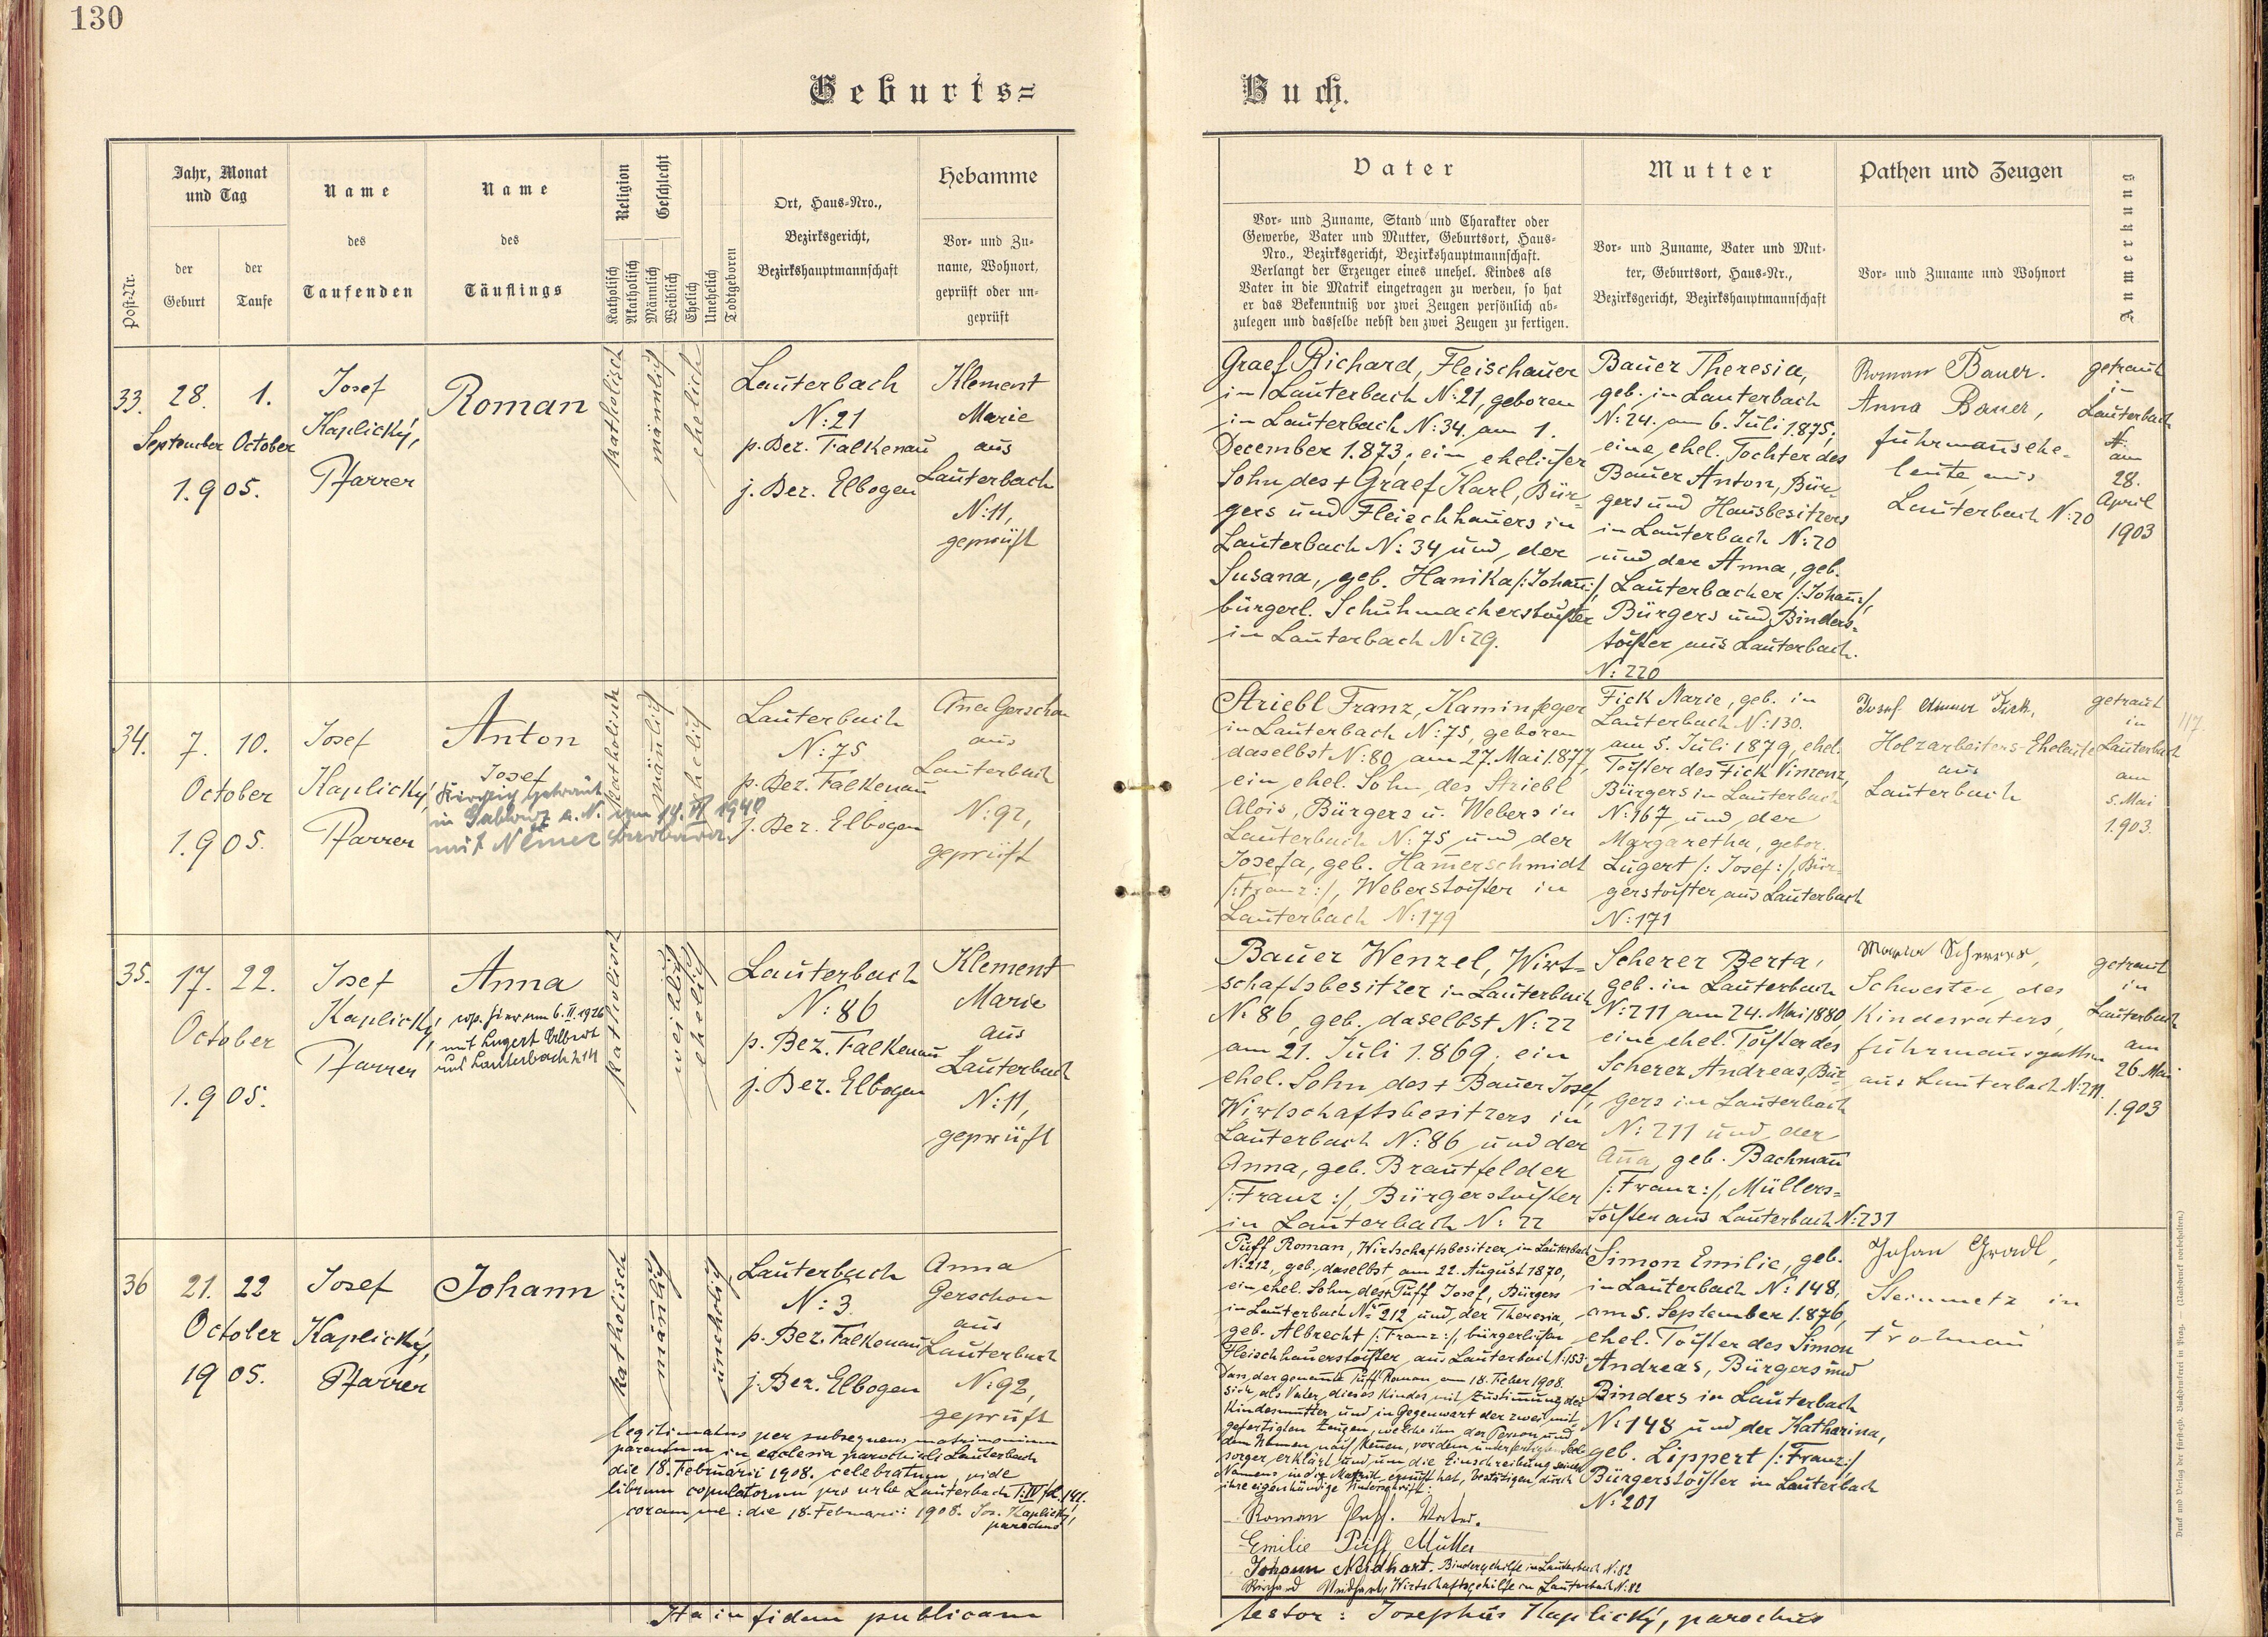 130
Geburts=
Buch.
Post-Nr.
Jahr, Monat
und Tag
der
Geburt
der
Taufe
Name
des
Taufenden
Name
des
Täuflings
Religion
Katholisch
Akatholisch
Geschlecht
Männlich
Weiblich
Ehelich
Unehelich
Todtgeboren
Ort, Haus-Nro.,
Bezirksgericht,
Bezirkshauptmannschaft
Hebamme
Vor- und Zu-
name, Wohnort,
geprüft oder un-
geprüft
Vater
Vor- und Zuname, Stand und Charakter oder
Gewerbe, Vater und Mutter, Geburtsort, Haus-
Nro., Bezirksgericht, Bezirkshauptmannschaft.
Verlangt der Erzeuger eines unehel. Kindes als
Vater in die Matrik eingetragen zu werden, so hat
er das Bekenntniß vor zwei Zeugen persönlich ab-
zulegen und dasselbe nebst den zwei Zeugen zu fertigen.
Mutter
Vor- und Zuname, Vater und Mut-
ter, Geburtsort, Haus-Nr.,
Bezirksgericht, Bezirkshauptmannschaft
Pathen und Zeugen
Vor- und Zuname und Wohnort
Anmerkung
33.
28.
September
1.
October
1.905.
Josef
Kaplický,
Pfarrer
Roman
katholisch
männlich
ehelich
Lauterbach
N:21
p. Bez. Falkenau
j. Bez. Elbogen
Klement
Marie
aus
Lauterbach
N:11,
geprüft
Graef Richard, Fleischauer
in Lauterbach N:21, geboren
in Lauterbach N:34. am 1.
December 1.873; ein ehelicher
Sohn des + Graef Karl, Bür-
gers und Fleischhauers in
Lauterbach N: 34 und der
Susana, geb. Hanika /:Johan:/,
bürgerl. Schuhmacherstochter
in Lauterbach N:29.
Bauer Theresia,
geb. in Lauterbach
N:24. am 6. Juli 1.875;
eine ehel. Tochter des
Bauer Anton, Bür-
gers und Hausbesitzers
in Lauterbach N:20
und der Anna, geb.
Lauterbacher /:Johan:/,
Bürgers und Binders=
tochter aus Lauterbach.
N:220
Roman Bauer.
Anna Bauer,
fuhrmansehe-
leute aus
Lauterbach N:20
getraut
in
Lauterbach
am
28.
April
1903
34.
7. 10.
October
1.905.
Josef
Kaplický,
Pfarrer
Anton
Josef
Kirchlich getraut
in Gablonz a.N. am 14. 1940
mit
katholisch
mänlich
ehelich
Lauterbach
N:75
p. Bez. Falkenau
j. Bez. Elbogen
Ana Gerschon
aus
Lauterbach
N:92,
geprüft
Striebl Franz, Kaminfeger
in Lauterbach N:75, geboren
daselbst N:80 am 27. Mai 1.877,
ein ehel. Sohn des Striebl
Alois, Bürgers u. Webers in
Lauterbach N:75 und der
Josefa, geb. Hamerschmidt
/:Franz:/, Weberstochter in
Lauterbach N:179
Fick Marie, geb. in
Lauterbach N:130.
am 5. Juli 1879, ehel.
Tochter des Fick Vinzenz,
Bürgers in Lauterbach
N:167 und der
Margaretha, gebor.
Lugert /:Josef:/, Bür-
gerstochter aus Lauterbach
N:171
Josef Fick,
Holzarbeiters-Eheleute
aus
Lauterbach
getraut
in
Lauterbach
am
5. Mai
1.903.
117.
35.
17. 22.
October
1.905.
Josef
Kaplický,
Pfarrer
Anna
cop. hier am 6. II. 1926
mit Lugert
aus Lauterbach
katholisch
weiblich
ehelich
Lauterbach
N:86
p. Bez. Falkenau
j. Bez. Elbogen
Klement
Marie
aus
Lauterbach
N:11,
geprüft
Bauer Wenzel, Wirt=
schaftsbesitzer in Lauterbach
N:86, geb. daselbst N:22
am 21. Juli 1.869, ein
ehel. Sohn des + Bauer Josef,
Wirtschaftsbesitzers in
Lauterbach N:86 und der
Anna, geb. Brautfelder
/:Franz:/, Bürgerstochter
in Lauterbach N: 22
Scherer Berta,
geb. in Lauterbach
N:211 am 24. Mai 1880,
eine ehel. Tochter des
Scherer Andreas, Bür-
gers in Lauterbach
N:211 und der
Ana, geb. Bachman
/:Franz:/, Müllers=
tochter aus Lauterbach N:231
Maria Scherer,
Schwester des
Kindesvaters,
fuhrmansgattin
aus Lauterbach N:211.
getraut
in
Lauterbach
am
26. Mai
1.903
36
21. 22
October
1905.
Josef
Kaplický,
Pfarrer
Johann
katholisch
mänlich
unehelig
Lauterbach
N:3.
p. Bez. Falkenau
j. Bez. Elbogen
Anna
Gerschon
aus
Lauterbach
N:92,
geprüft
legitimatus per subsequens matrimonium
parentum in ecclesia parochiali Lauterbach
die 18. Februarii 1908. celebratum, vide
librum copulatorum pro urbe Lauterbach T: IV fol. 141.
coram me: die 18. Februari: 1908. Jos. Kaplický,
parochus
Puff Roman, Wirtschaftsbesitzer in Lauterbach
N:212, geb. daselbst am 22. August 1870,
ein ehel. Sohn des + Puff Josef, Bürgers
in Lauterbach N: 212 und der Theresia,
geb. Albrecht /:Franz:/, bürgerlichen
Fleischhauerstochter aus Lauterbach N:153.
Dass der genannte Puff Roman am 18. Feber 1908.
sich als Vater dieses Kindes mit Zustimmung der
Kindesmutter und in Gegenwart der zwei mit-
gefertigten Zeugen, welche ihn der Person und
dem Namen nach kenen, vor dem unterfertigten Seel-
sorger erklärt und um die Einschreibung seines
Namens in die Matrik ersucht hat, bestätigen durch
ihre eigenhändige Unterschrift:
Roman Puff. Vater.
Emilie Puff, Mutter
Johann Neidhart, Bindergehilfe in Lauterbach N:82
Richard Neidhart, Wirtschaftsgehilfe in Lauterbach N:82
Simon Emilie, geb.
in Lauterbach N:148,
am 5. September 1.876,
ehel. Tochter des Simon
Andreas, Bürgers und
Binders in Lauterbach
N:148 und der Katharina,
geb. Lippert /:Franz:/
Bürgerstochter in Lauterbach
N:201
Johan Gradl,
Steinmetz in
Frohnau
Ita in fidem publicam
testor: Josephus Kaplický, parochus
Druck und Verlag der fürst-erzb. Buchdruckerei in Prag. — (Nachdruck vorbehalten.)